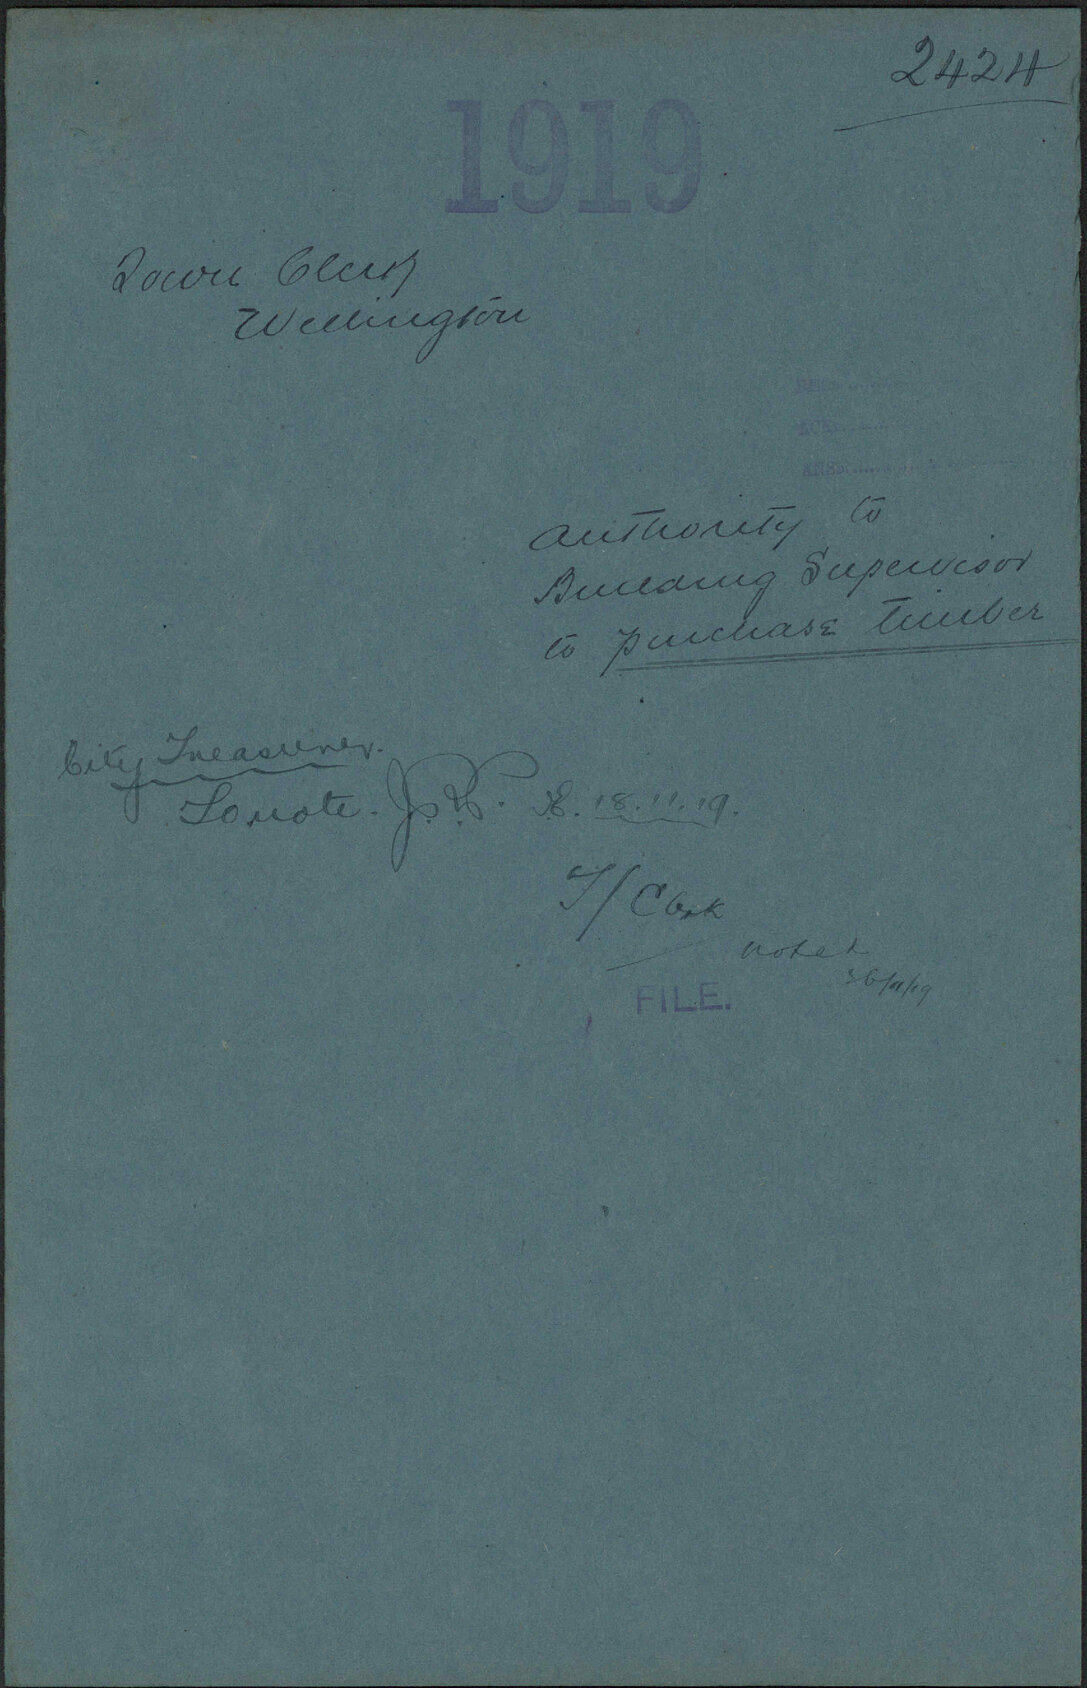 2424
1919
Town Clerk
Wellington
Authority to
Building Supervisor
to purchase timber
City Treasurer.
To note. 18.11.19.
T/Clerk
noted
/11/19
FILE.